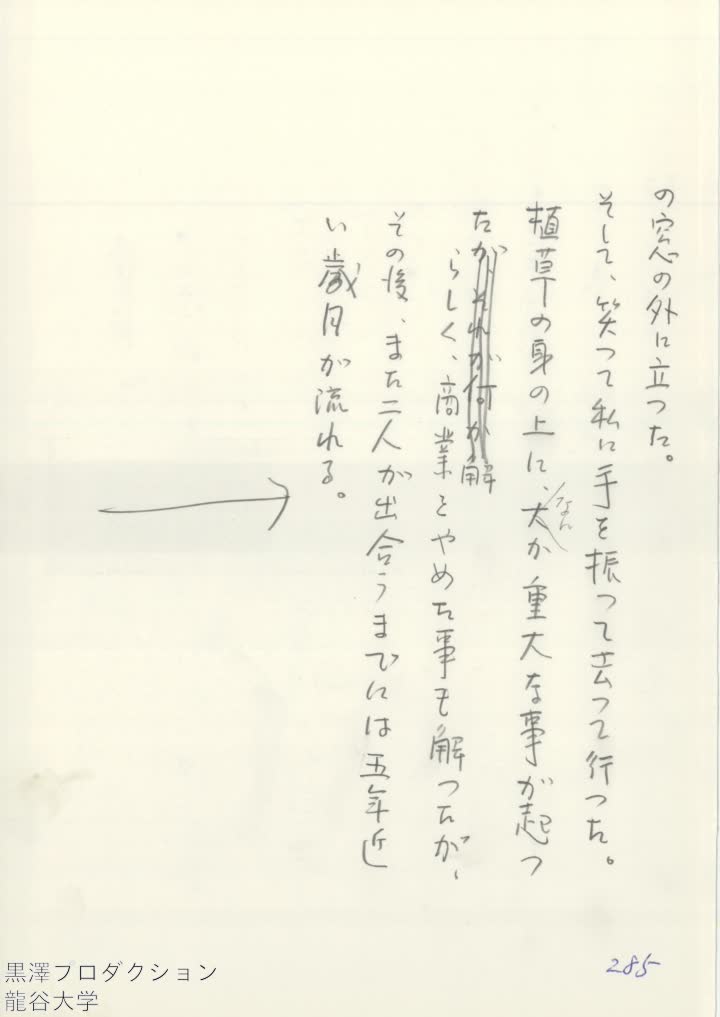 の窓の外に立つた。
そして、笑つて私に手を振つて去つて行つた。
植草の身の上に、なんか重大な事が起つ
たが、それが何か解
らしく、商業をやめた事も解つたが、
その後、また二人が出合うまでには五年近
い歳月が流れる。
285
黒澤プロダクション
龍谷大学